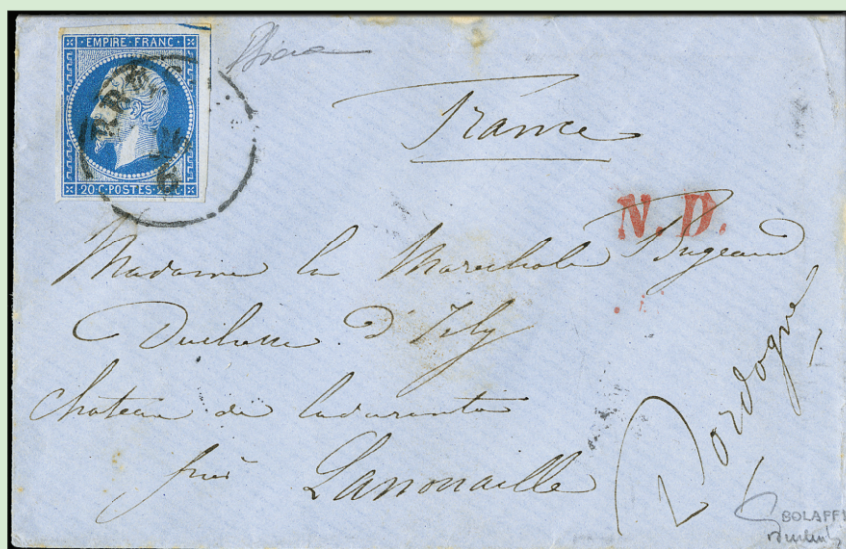 EMPIRE FRANC
20 C POSTES 20 C
26
6
France
N. D.
Madame la Marechale Bugeaud
Duchesse d'Isly
chateau de
près Lanouaille
Dordogne
BOLAFFI